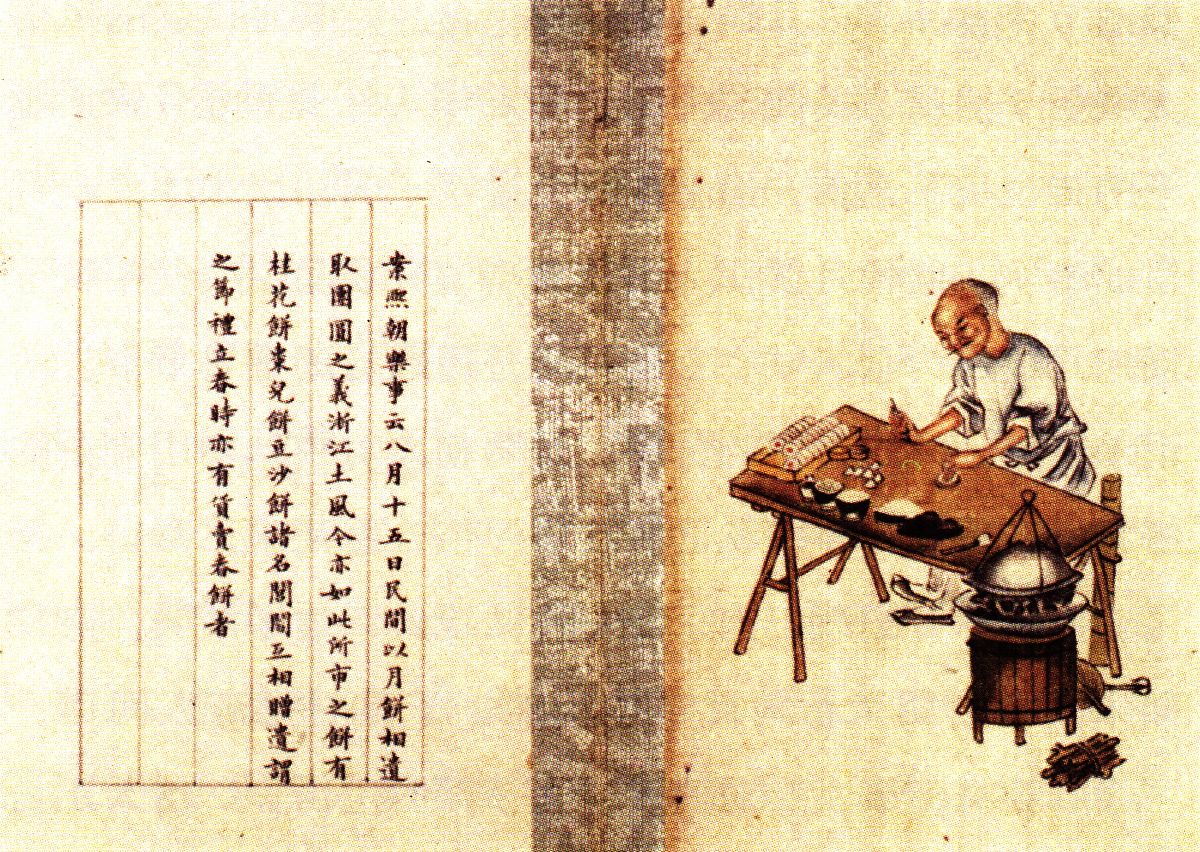 案熙朝樂事云八月十五日民間以月餅相遺
取團圓之義浙江土風今亦如此所市之餅有
桂花餅棗兒餅豆沙餅諸名閭閻互相贈遺謂
之節禮立春時亦有賃賣春餅者